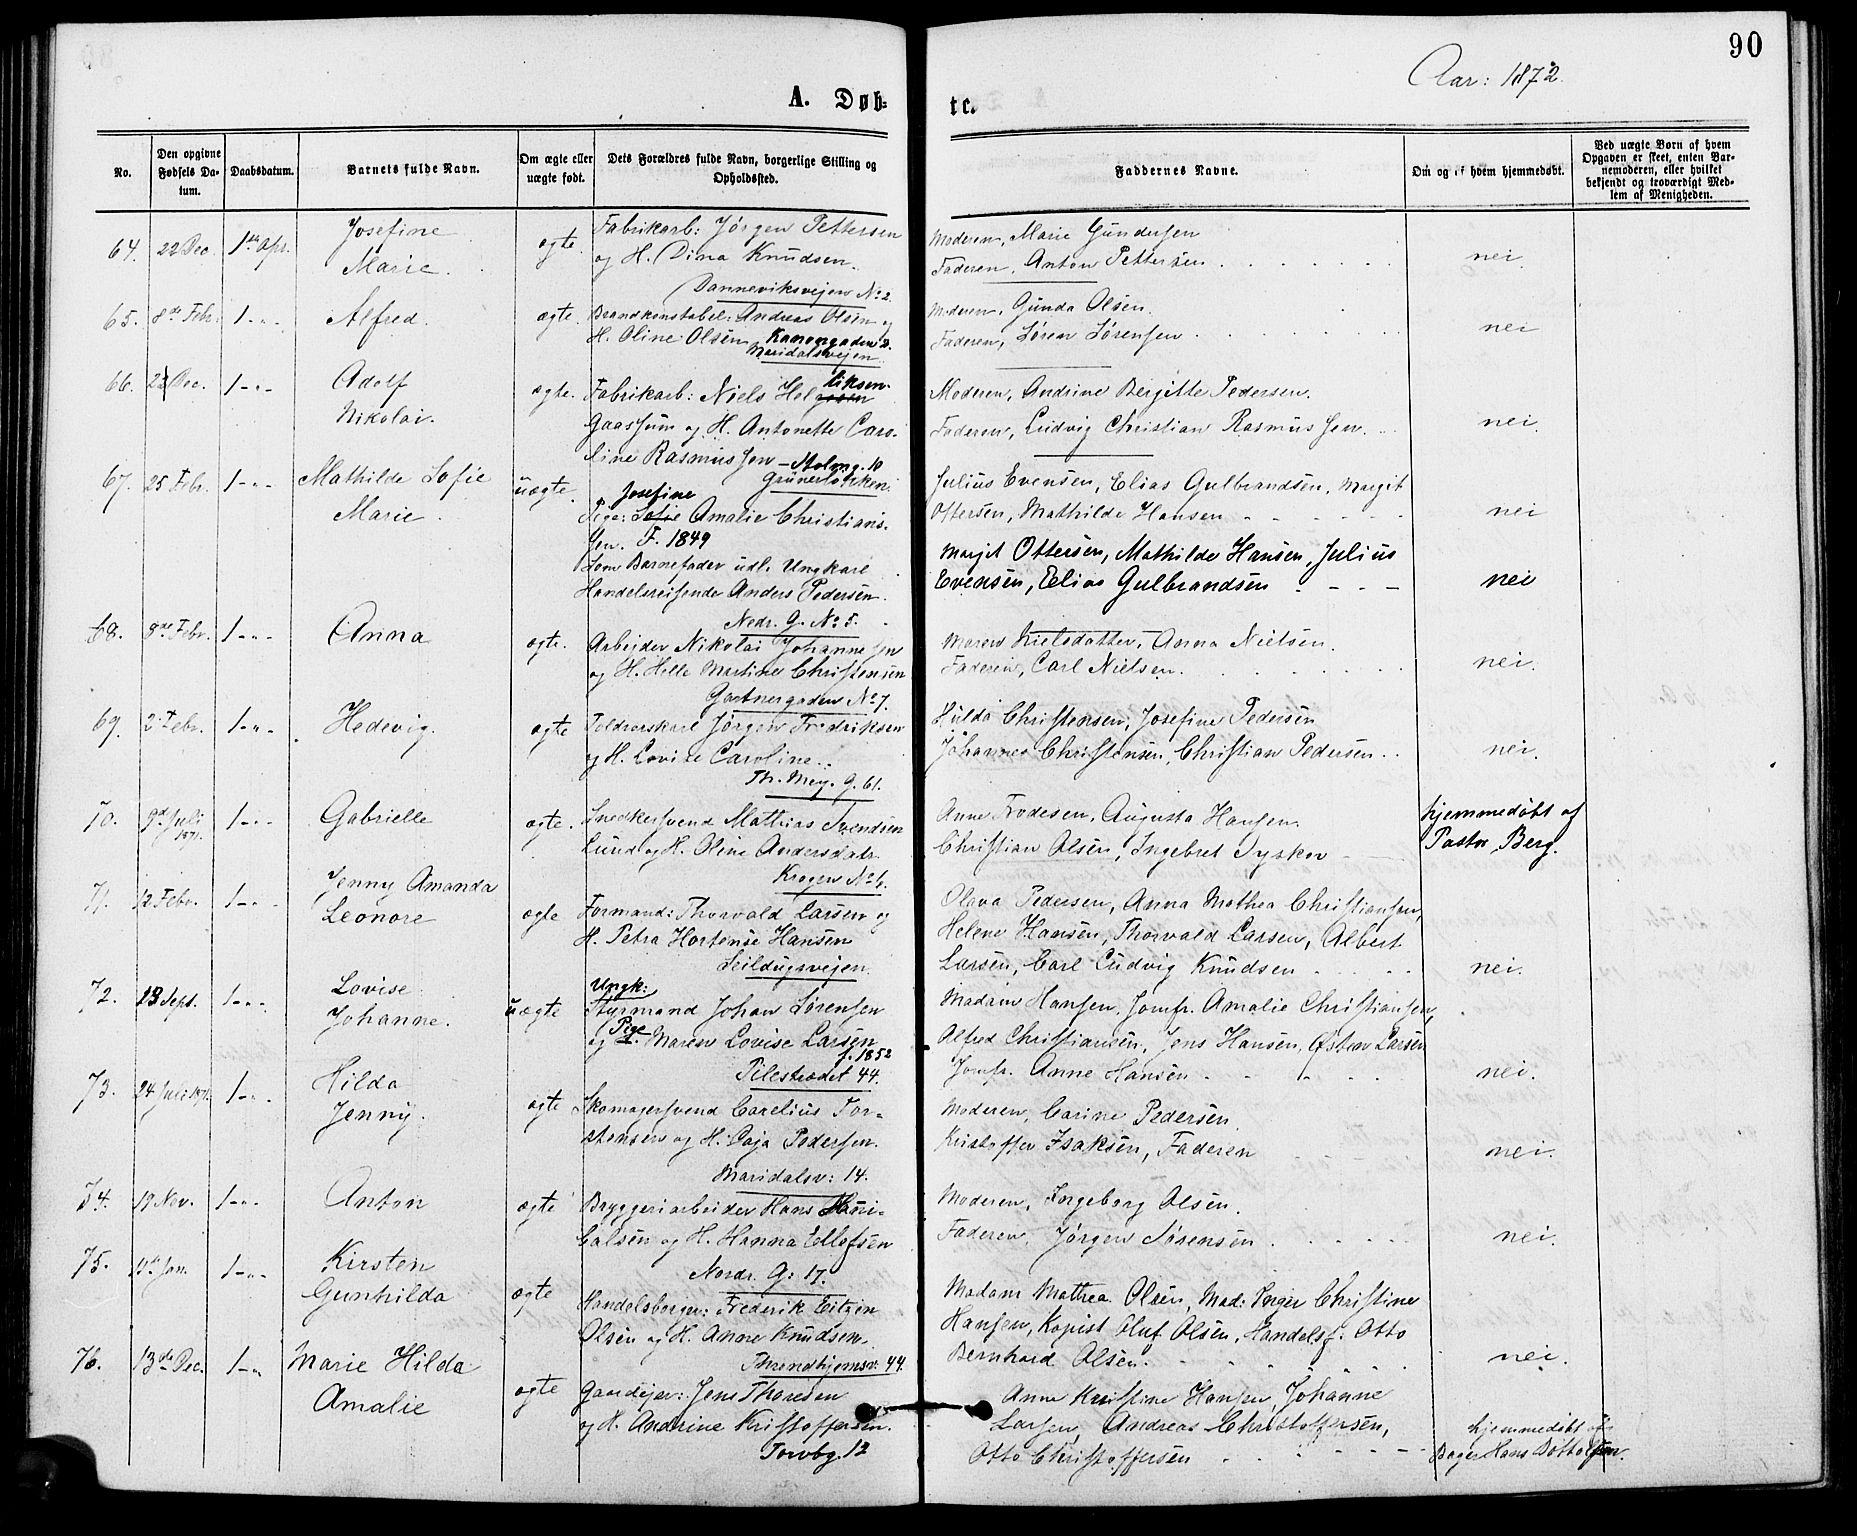 90
Aar: 1872.
A. Døb-
te.
No.
Den opgivne Fødsels Datum.
Daabsdatum.
Barnets fulde Navn.
Om ægte eller uægte født.
Dets Forældres fulde Navn, borgerlige Stilling og Opholdssted.
Faddernes Navne.
Om og af hvem hjemmedøbt.
Ved uægte Børn af hvem
Opgaven er skeet, enten Bar-
nemoderen, eller hvilket
bekjendt og troværdigt Med-
lem af Menigheden.
64. 22 Dec. 1ste Apr. Josefine
Marie.
ægte.
Fabrikarb: Jørgen Pettersen
og H. Dina Knudsen.
Danneviksveien No 2.
Moderen, Marie Gundersen
Faderen, Anton Pettersen
nei.
65. 8de Febr. 1-"- Alfred.
ægte.
Brandkonstabel: Andreas Olsen og
H. Oline Olsen Kanongaden 2.
Maridalsveien
Moderen, Gunda Olsen.
Faderen, Søren Sørensen.
nei
66. Dec. 1-"- Adolf
Nikolai.
ægte.
Fabrikarb: Niels Hel
Gaassum og H. Antonette Caro-
line Rasmussen - Holmg. 10
Grünerløkken.
Moderen, Andrine Bergitte Pedersen.
Faderen, Ludvig Christian Rasmussen.
nei.
67. 25 Febr. 1-"- Mathilde Sofie
Marie.
uægte.
Josefine
Pige: Sofie Amalie Christian-
sen. F. 1849
Som Barnefader udl. Ungkarl
Handelsreisende Anders Pedersen.
Nedr. G. No 5.
Julius Evensen, Elias Gulbrandsen, Margit
Ottersen, Mathilde Hansen
nei
Margit Ottersen, Mathilde Hansen, Julius
Evensen, Elias Gulbrandsen
nei
68. 9de Febr. 1-"- Anna
ægte.
Arbejder Nikolai Johannesen
og H. Helle Martine Christensen
Gartnergaden No 7.
Maren Nielsdatter, Anna Nielsen.
Faderen, Carl Nielsen.
nei.
69. 2 Febr. 1-"- Hedevig.
ægte
Toldvorskarl Jørgen Fredriksen
og H. Lovise Caroline.
Th. Mey. g. 61.
Hulda Christensen, Josefine Pedersen
Johannes Christensen, Christian Pedersen.
nei.
70. 9de Juli 1871. 1-"- Gabrielle
ægte.
Snedkersvend Mathias Svendsen
Lund og H. Oline Andersdatr.
Krogen No 4.
Anne Frodesen, Augusta Hansen.
Christian Olsen, Ingebret Tysken
hjemmedøbt af
Pastor Berg.
71. 12 Febr. 1-"- Jenny Amanda
Leonore
ægte
Formand: Thorvald Larsen og
H. Petra Hortense Hansen
Seildugsveien.
Olava Pedersen, Anna Mathea Christiansen,
Helene Hansen, Thorvald Larsen, Albert
Larsen, Carl Ludvig Knudsen
nei.
72. 13 Sept. 1-"- Lovise
Johanne.
uægte
Ungk:
Styrmand Johan Sørensen
og Pige Maren Lovise Larsen
f. 1852
Pilestrædet 44.
Madam Hansen, Jomfr. Amalie Christiansen,
Alfred Christiansen, Jens Hansen, Østen Larsen
Jomfr. Anne Hansen
nei.
73. 24 Juli 1871. 1-"- Hilda
Jenny.
ægte
Skomagersvend Carelius Tor-
stensen og H. Caja Pedersen.
Maridalsv: 14.
Moderen, Carine Pedersen.
Kristoffer Isaksen, Faderen
nei.
74. 19 Nov. 1-"- Anton
ægte
Bryggeriarbeider Hans Hari-
Calsen og H. Hanna Ellefsen
Nordr. G: 17.
Moderen, Ingeborg Olsen.
Faderen, Jørgen Sørensen
nei.
75. Jan. 1-"- Kirsten
Gunhilda
ægte
Handelsborger: Frederik Eitzen
Olsen og H. Anne Knudsen.
Throndhjemsv: 44.
Madam Mathea Olsen, Mad: Inger Christine
Hansen, Kopist Oluf Olsen, Handelsf. Otto
Bernhard Olsen.
nei.
76. 13de Dec. 1-"- Marie Hilda
Amalie
ægte
Gaardejer: Jens Thoresen
og H. Andrine Kristoffersen.
Torvbg. 12
Anne Kristine Hansen, Johanne
Larsen, Andreas Christoffersen,
Otto Christoffersen
hjemmedøbt af
Bager Hans Bottolfsen.